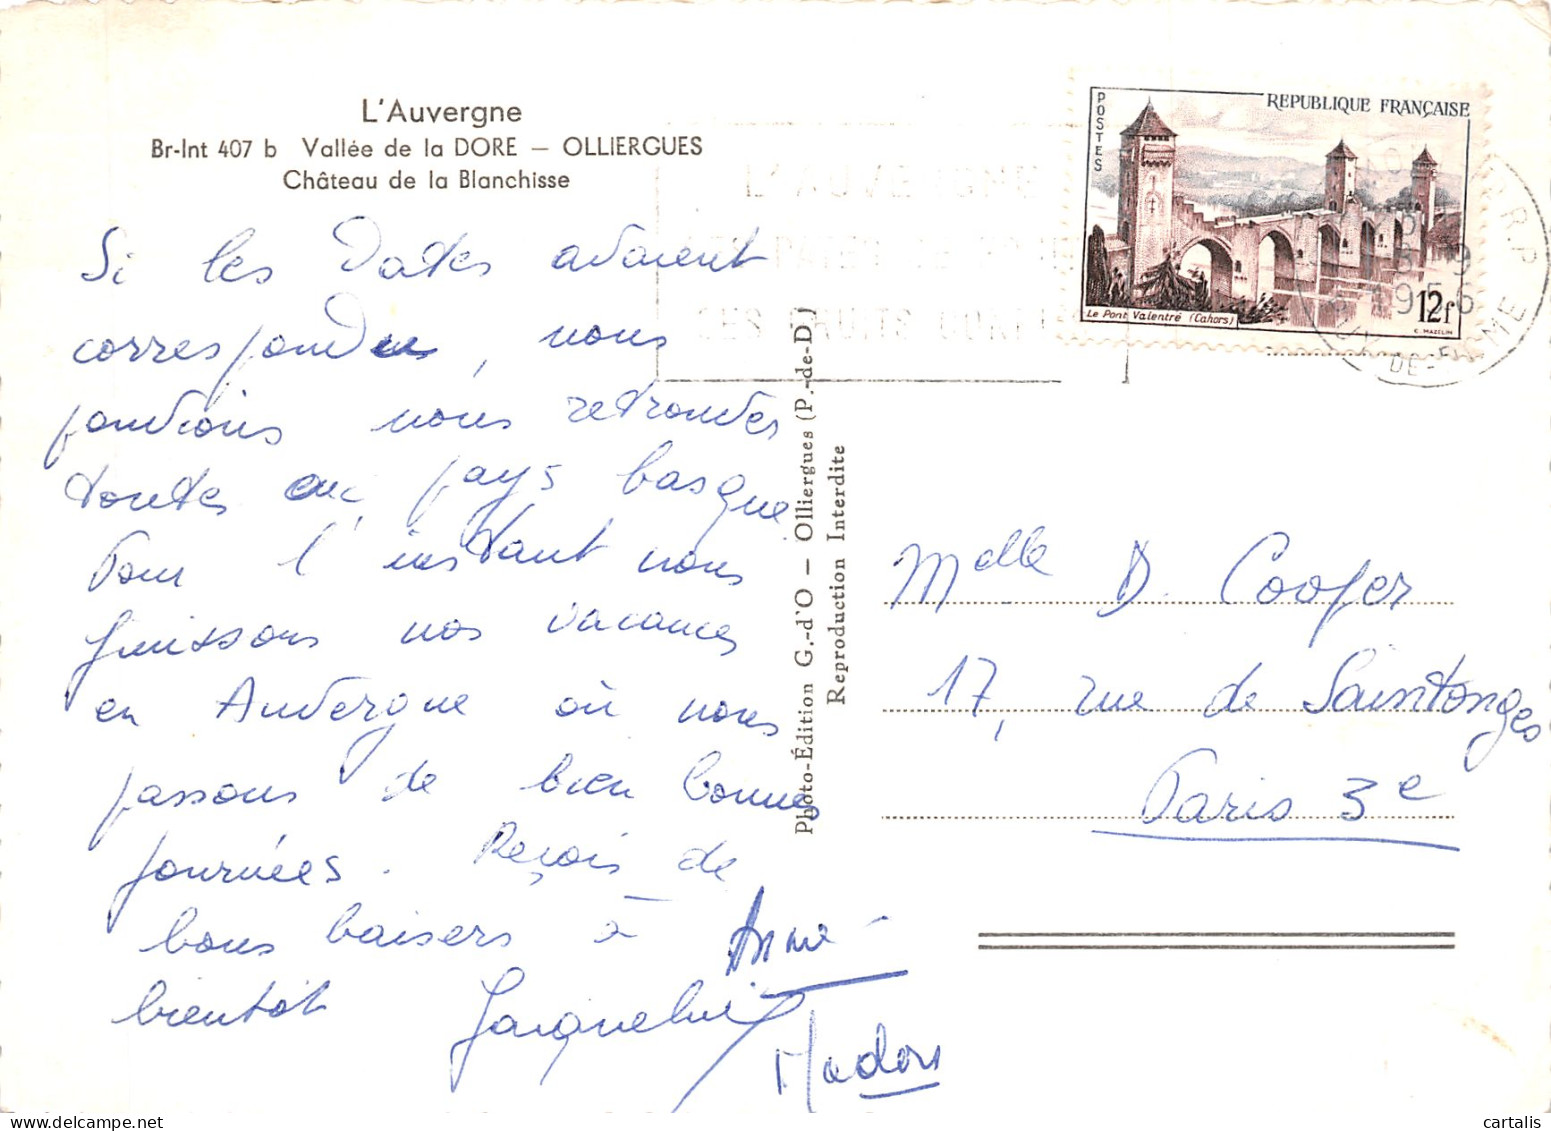 L'Auvergne
Br-Int 407 b Vallée de la DORE — OLLIERGUES
Château de la Blanchisse
Si les Dates avaient
correspondu, nous
pouvions nous retrouver
toutes au pays basque
Pour l'instant nous
finissons nos vacances
en Auvergne où nous
passons de bien bonnes
journées. Reçois de
bons baisers à
bientôt Jacqueline
Anne
Photo-Édition G.-d'O — Olliergues (P.-de-D.)
Reproduction Interdite
POSTES
REPUBLIQUE FRANÇAISE
Le Pont Valentré (Cahors)
12f
C. MAZELIN
L'AUVERGNE
R.P.
1956
PUY-DE-DOME
Melle D. Cooper
17, rue de Saintonges
Paris 3e
cartalis